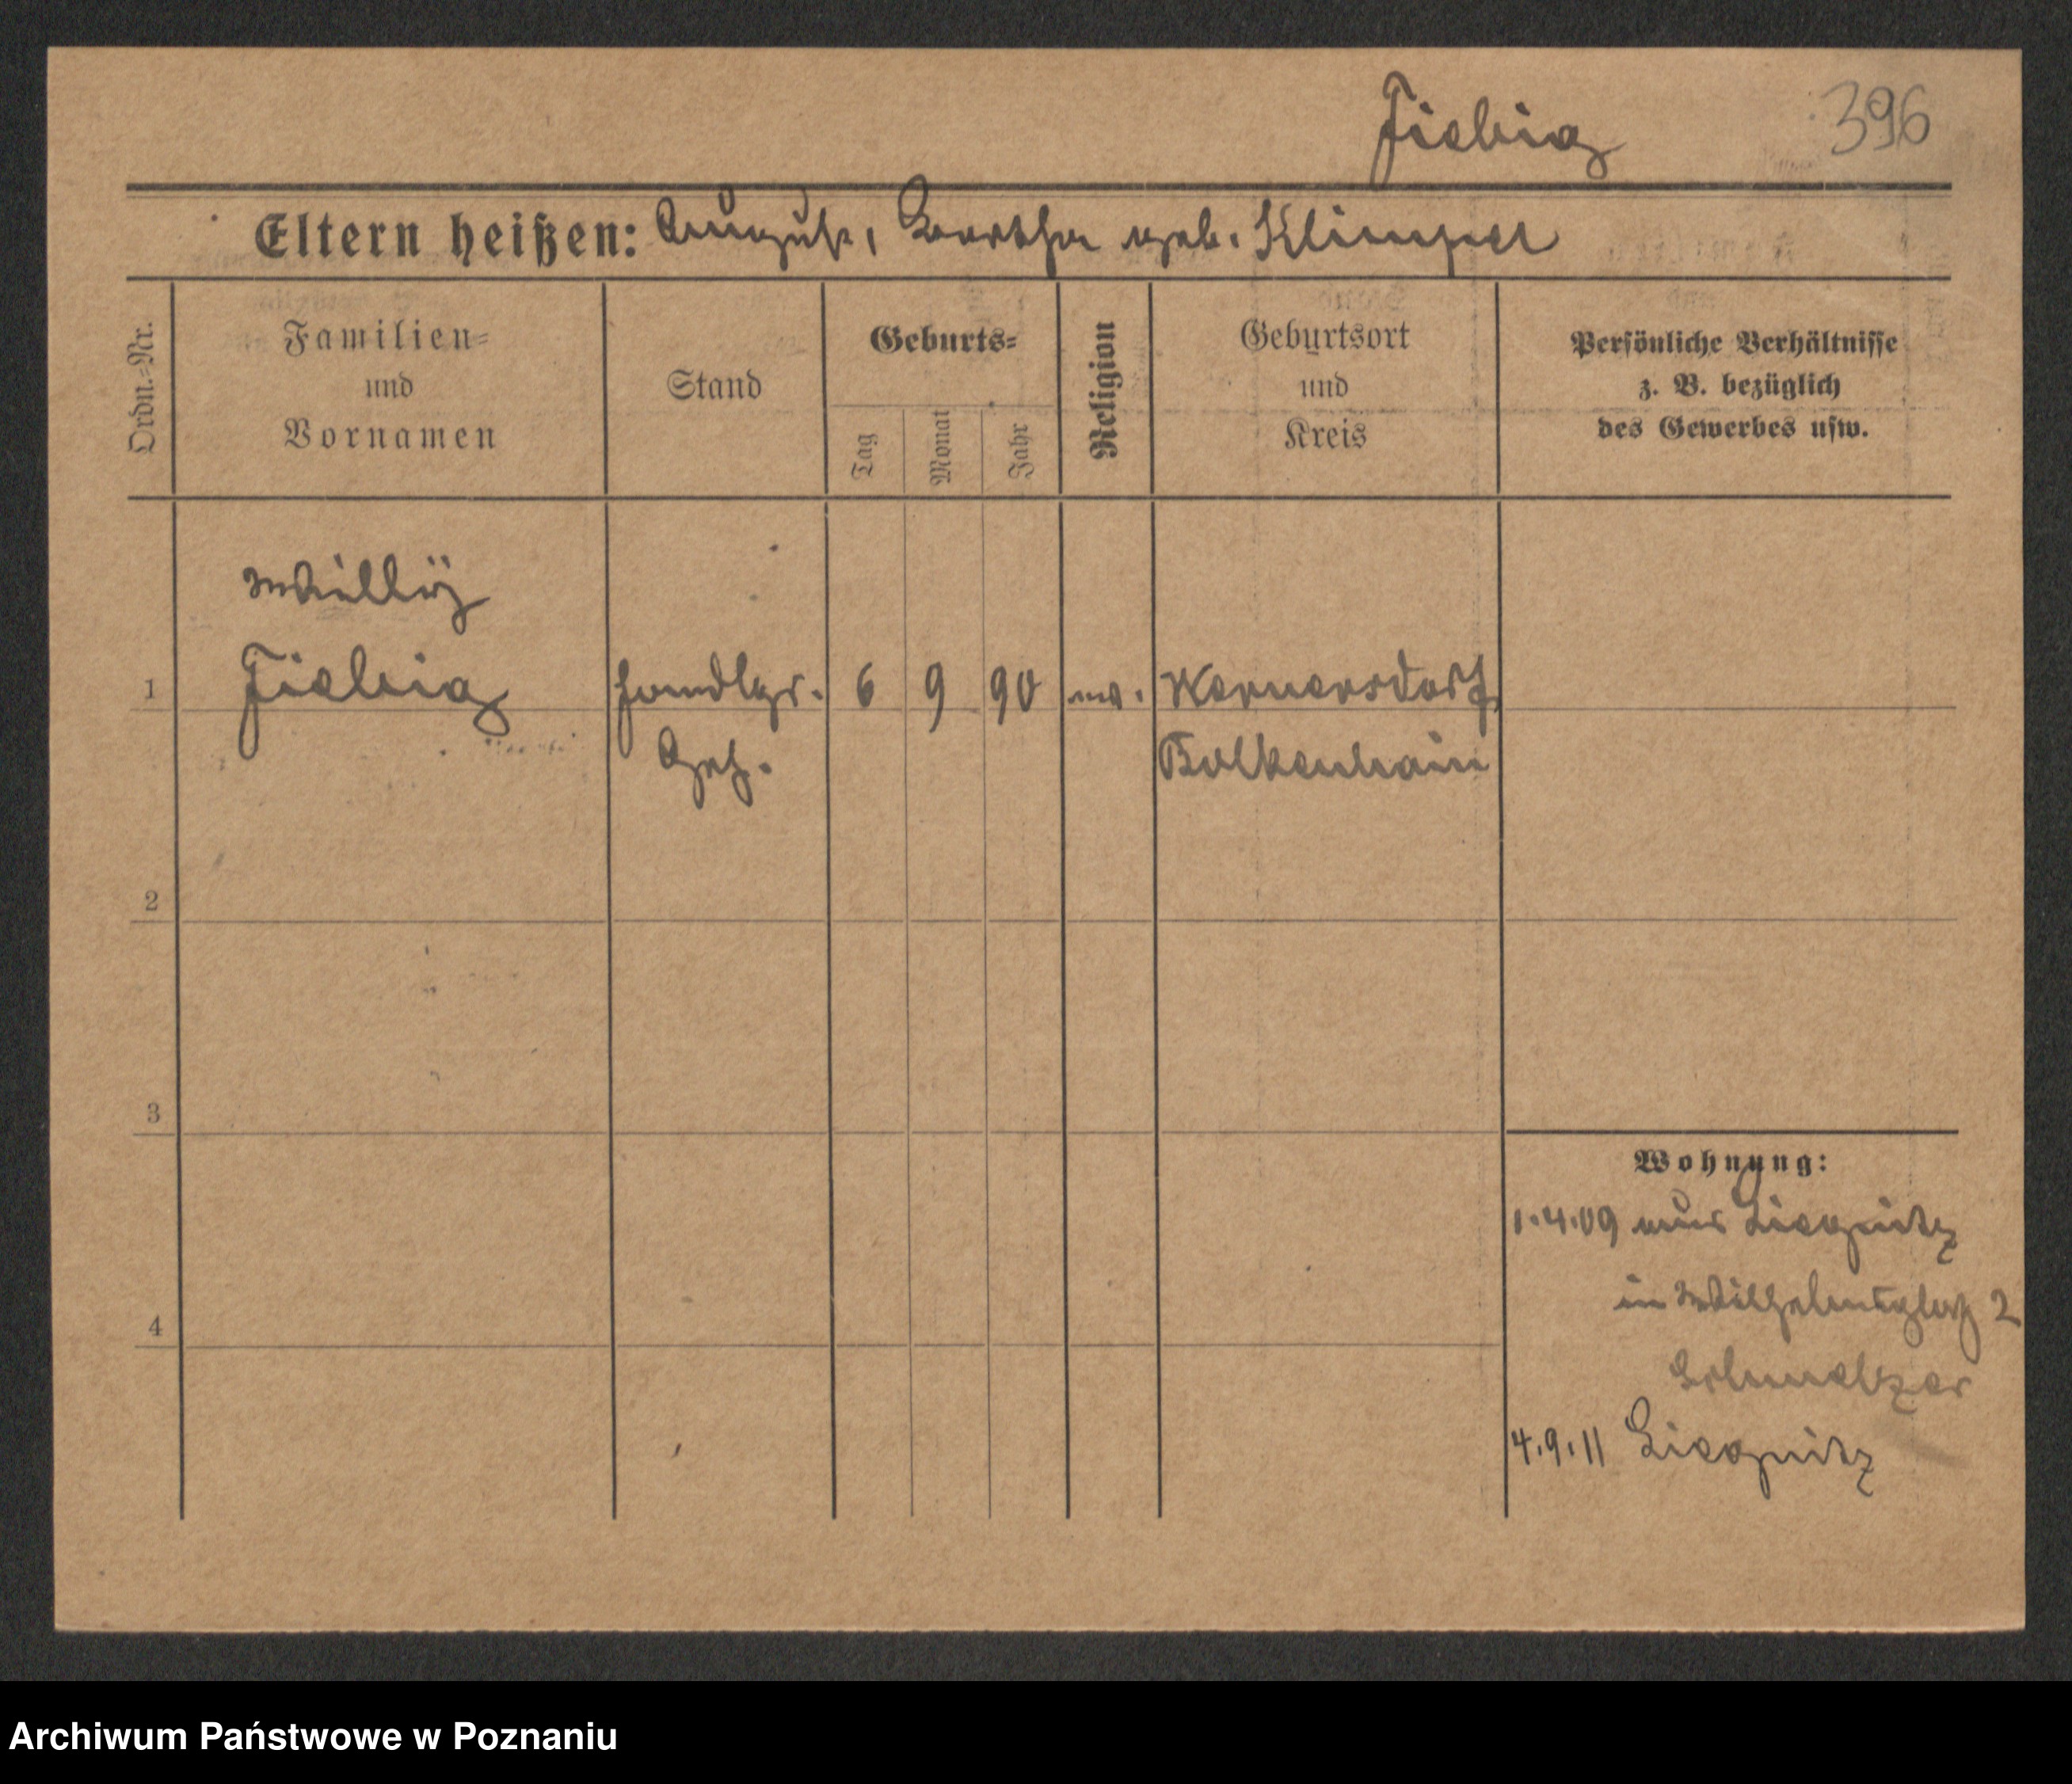 Fiebig 396
Eltern heißen: August, Bertha geb. Klimpel
Ordn.=Nr.
Familien=
und
Vornamen
Stand
Geburts=
Tag
Monat
Jahr
Religion
Geburtsort
und
Kreis
Persönliche Verhältnisse
z. B. bezüglich
des Gewerbes usw.
Willÿ
1 Fiebig Handlgs. 6 9 90 ev. Wernersdorf
Geh. Bolkenhain
2
3
4
Wohnung:
1.4.09 aus Liegnitz
in Wilhelmsplatz 2
Schmelzer
4.9.11 Liegnitz
Archiwum Państwowe w Poznaniu